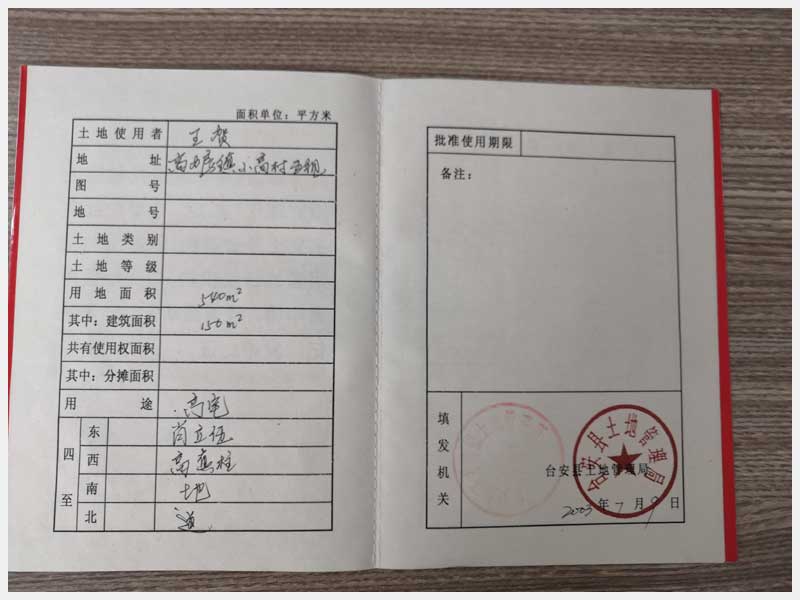 面积单位：平方米
土地使用者 王贺
地址 高力房镇小高村五组
图号
地号
土地类别
土地等级
用地面积 540m²
其中：建筑面积 150m²
共有使用权面积
其中：分摊面积
用途
四至
东 肖立伍
西
南 地
北 道
批准使用期限
备注：
填发机关
台安县土地管理局
台安县土地管理局
2003年7月9日